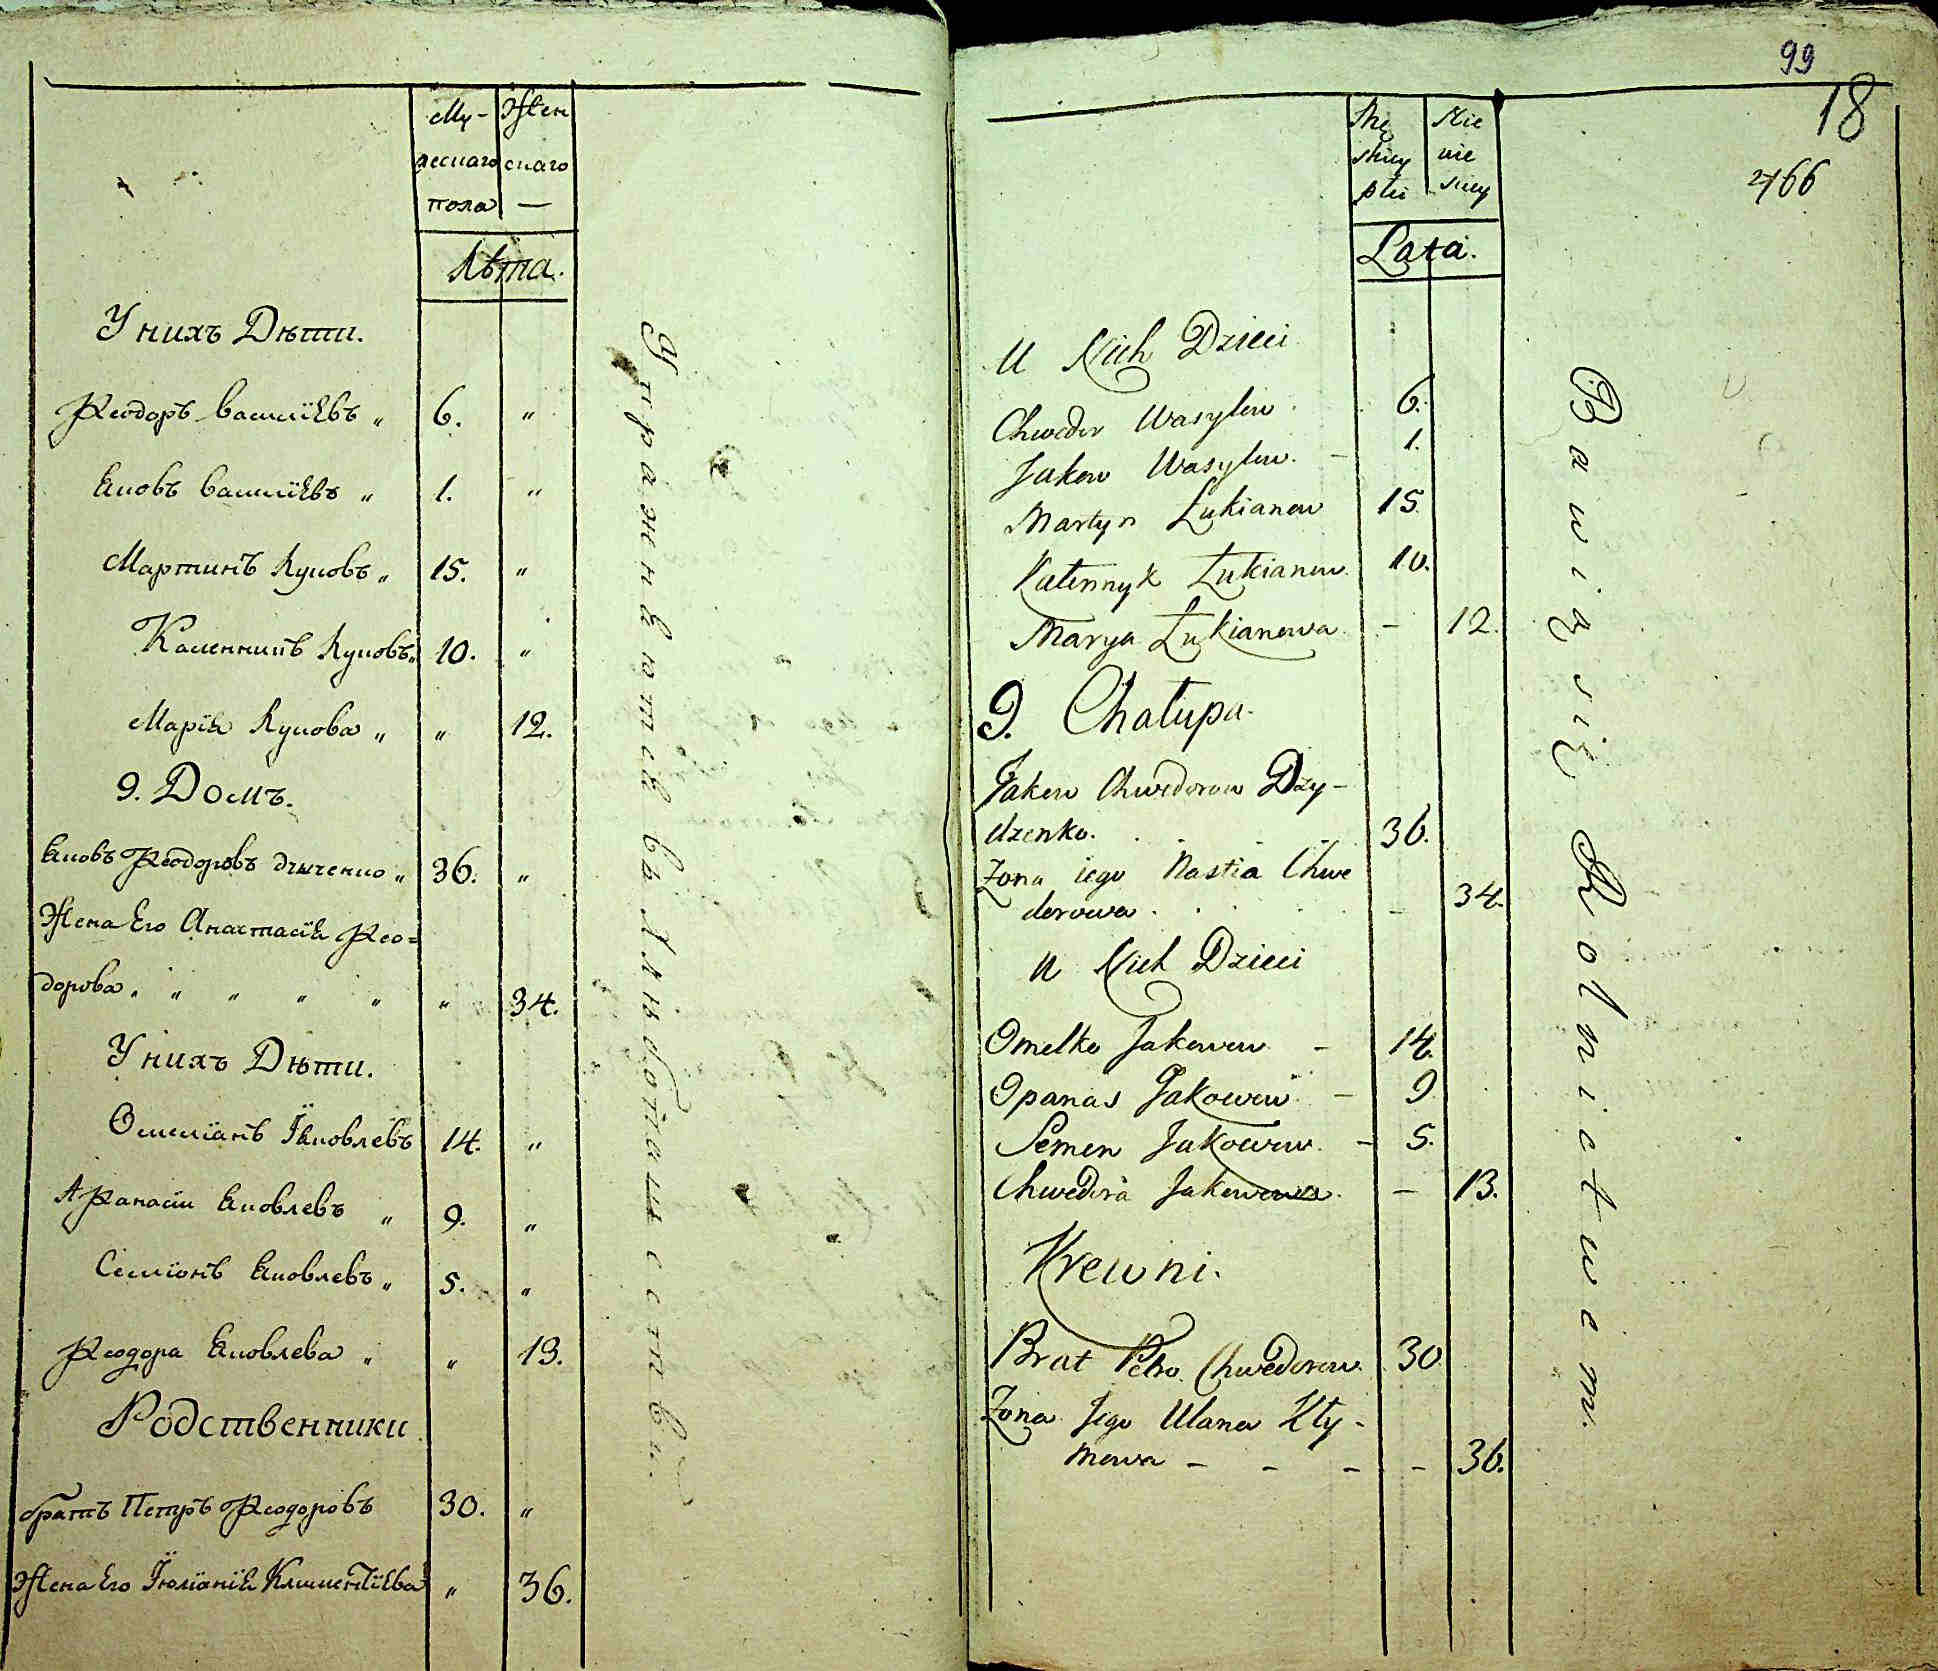 Му- Жен
жескаго скаго
пола —
Лѣта.
У нихъ Дѣти.
Ѳеодоръ Василіевъ „ 6. „
Яковъ Василіевъ „ 1. „
Мартинъ Луковъ „ 15. „
Каленникъ Луковъ „ 10. „
Марія Лукова „ „ 12.
9. Домъ.
Яковъ Ѳеодоровъ 36. „
Жена Его Анастасія Ѳео=
дорова „ „ „ „ „ „ 34.
У нихъ Дѣти.
Омеліанъ Яковлевъ 14. „
Аѳанасіи Яковлевъ „ 9. „
Семіонъ Яковлевъ „ 5. „
Ѳеодора Яковлева „ „ 13.
Родственники
братъ Петръ Ѳеодоровъ 30. „
Жена Его Іюліанія Климентіева „ 36.
Упражняются въ Хлѣбопашествѣ.
99
18
466
Mę Nie
skiey wie
płci sciey
Lata.
U Nich Dzieci
Chwedor Wasylew 6.
Jakow Wasylew. – 1.
Martyn Łukianow 15
Kalennyk Łukianow 10.
Marya Łukianowa – 12.
9. Chałupa.
Jakow Chwedorow Dzy-
dzenko. 36.
Zona iego Nastia Chwe
dorowa . – 34.
U Nich Dzieci
Omelko Jakowew – 14.
Opanas Jakowew – 9
Semen Jakowew. – 5.
Chwedora Jakowewa. – 13.
Krewni.
Brat Petro Chwedorow 30
Zona Jego Ulana Kły-
mowa – – – – 36.
Bawią się Rolnictwem.